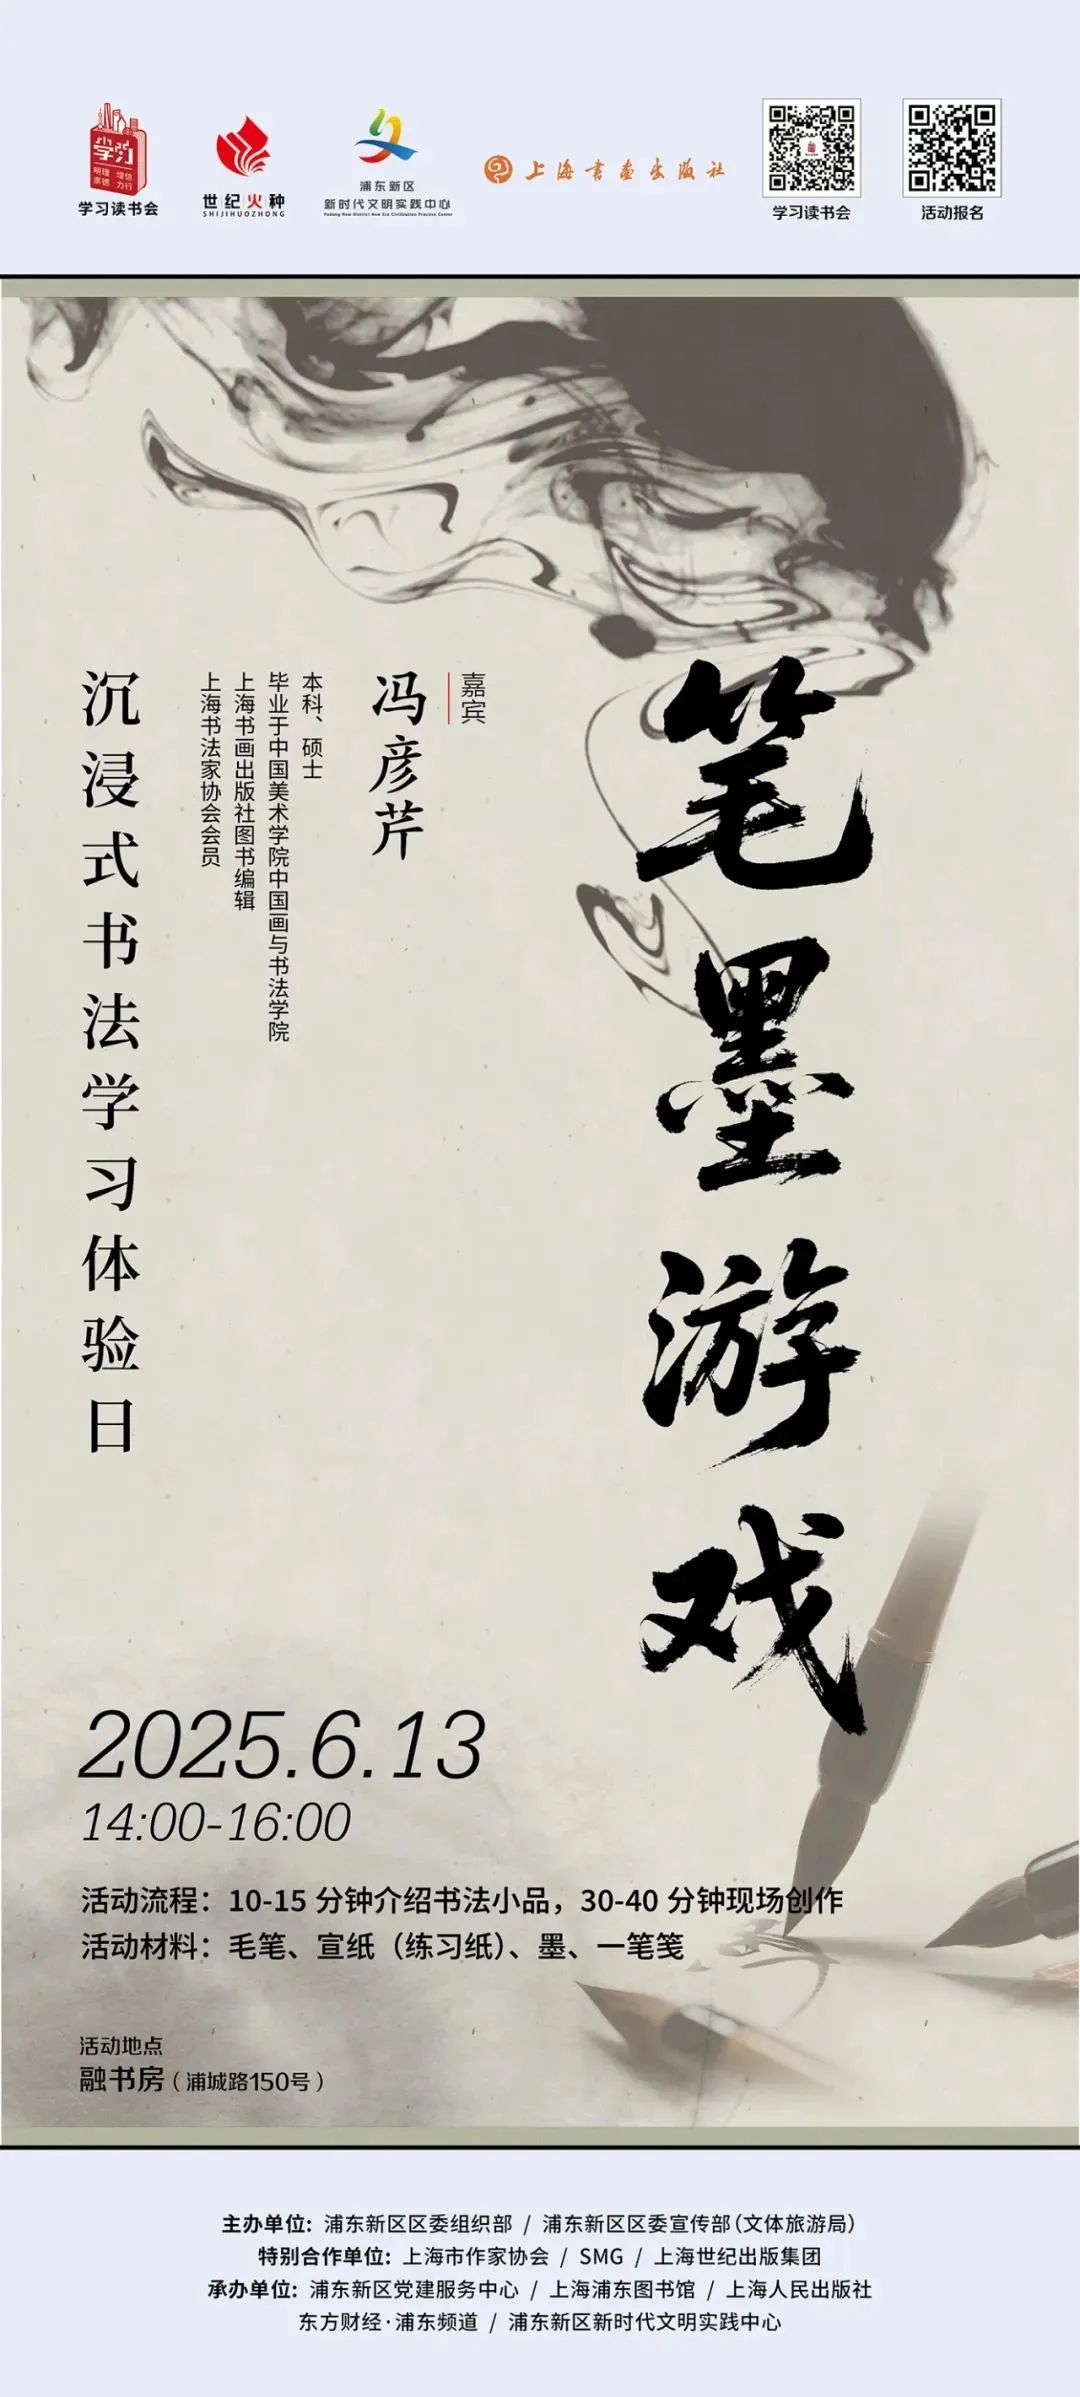 学习
明理 增信
崇德 力行
学习读书会
世纪火种
SHIJIHUOZHONG
浦东新区
新时代文明实践中心
Pudong New District New Era Civilization Practice Center
上海书画出版社
学习读书会
活动报名
笔墨游戏
嘉宾
冯彦芹
本科、硕士
毕业于中国美术学院中国画与书法学院
上海书画出版社图书编辑
上海书法家协会会员
沉浸式书法学习体验日
2025.6.13
14:00-16:00
活动流程：10-15 分钟介绍书法小品，30-40 分钟现场创作
活动材料：毛笔、宣纸（练习纸）、墨、一笔笺
活动地点
融书房（浦城路150号）
主办单位: 浦东新区区委组织部 / 浦东新区区委宣传部(文体旅游局)
特别合作单位: 上海市作家协会 / SMG / 上海世纪出版集团
承办单位: 浦东新区党建服务中心 / 上海浦东图书馆 / 上海人民出版社
东方财经·浦东频道 / 浦东新区新时代文明实践中心